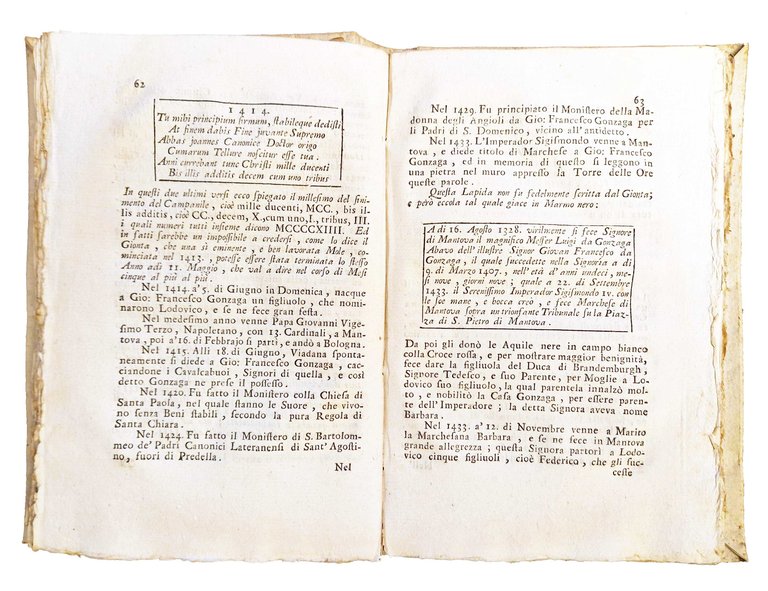 62
1414.
Tu mihi principium firmum, ſtabileque dediſti
At finem dabis Fine juvante Supremo
Abbas joannes Canonice Doctor origo
Cumarum Tellure noſcitur eſſe tua.
Anni currebant tunc Chriſti mille ducenti
Bis illis additis decem cum uno tribus
In queſti due ultimi verſi ecco ſpiegato il milleſimo del fini-
mento del Campanile, cioè mille ducenti, MCC., bis il-
lis additis, cioè CC., decem, X., cum uno, I., tribus, III.
i quali numeri tutti inſieme dicono MCCCCXIIII. Ed
in fatti ſarebbe un impoſſibile a crederſi, come lo dice il
Gionta, che una sì eminente, e ben lavorata Mole, co-
minciata nel 1413. poteſſe eſſere ſtata terminata lo ſteſſo
Anno adì 11. Maggio, che val a dire nel corſo di Meſi
cinque al più al più.
Nel 1414. a' 5. di Giugno in Domenica, nacque
a Gio: Franceſco Gonzaga un figliuolo, che nomi-
narono Lodovico, e ſe ne fece gran feſta.
Nel medeſimo anno venne Papa Giovanni Vige-
ſimo Terzo, Napoletano, con 13. Cardinali, a Man-
tova, poi a' 16. di Febbrajo ſi partì, e andò a Bologna.
Nel 1415. Alli 18. di Giugno, Viadana ſponta-
neamente ſi diede a Gio: Franceſco Gonzaga, cac-
ciandone i Cavalcabuoi, Signori di quella, e così
detto Gonzaga ne preſe il poſſeſſo.
Nel 1420. Fu fatto il Moniſtero colla Chieſa di
Santa Paola, nel quale ſtanno le Suore, che vivo-
no ſenza Beni ſtabili, ſecondo la pura Regola di
Santa Chiara.
Nel 1424. Fu fatto il Moniſtero di S. Bartolom-
meo de' Padri Canonici Lateranenſi di Sant' Agoſti-
no, fuori di Predella.
Nel
63
Nel 1429. Fu principiato il Moniſtero della Ma-
donna degli Angioli da Gio: Franceſco Gonzaga per
li Padri di S. Domenico, vicino all'antidetto.
Nel 1433. L'Imperador Sigiſmondo venne a Man-
tova, e diede titolo di Marcheſe a Gio: Franceſco
Gonzaga, ed in memoria di queſto ſi leggono in
una pietra nel muro appreſſo la Torre delle Ore
queſte parole.
Queſta Lapida non fu fedelmente ſcritta dal Gionta;
e però eccola tal quale giace in Marmo nero:
A dì 16. Agoſto 1328. virilmente ſi fece Signore
di Mantova il magnifico Meſſer Luigi da Gonzaga
Abavo dell'illuſtre Signor Giovan Franceſco da
Gonzaga, il quale ſuccedette nella Signoria a dì
9. di Marzo 1407. nell'età d'anni undeci, me-
ſi nove, giorni nove; quale a 22. di Settembre
1433. il Sereniſſimo Imperador Sigiſmondo IV. con
le ſoe mane, e bocca creò, e fece Marcheſe di
Mantova ſopra un trionfante Tribunale ſu la Piaz-
za di S. Pietro di Mantova.
Da poi gli donò le Aquile nere in campo bianco
colla Croce roſſa, e per moſtrare maggior benignità,
fece dare la figliuola del Duca di Brandemburgh,
Signore Tedeſco, e ſuo Parente, per Moglie a Lo-
dovico ſuo figliuolo, la qual parentela innalzò mol-
to, e nobilitò la Caſa Gonzaga, per eſſere paren-
te dell'Imperadore; la detta Signora aveva nome
Barbara.
Nel 1433. a' 12. di Novembre venne a Marito
la Marcheſana Barbara, e ſe ne fece in Mantova
grande allegrezza; queſta Signora partorì a Lodo-
vico cinque figliuoli, cioè Federico, che gli ſuc-
ceſſe